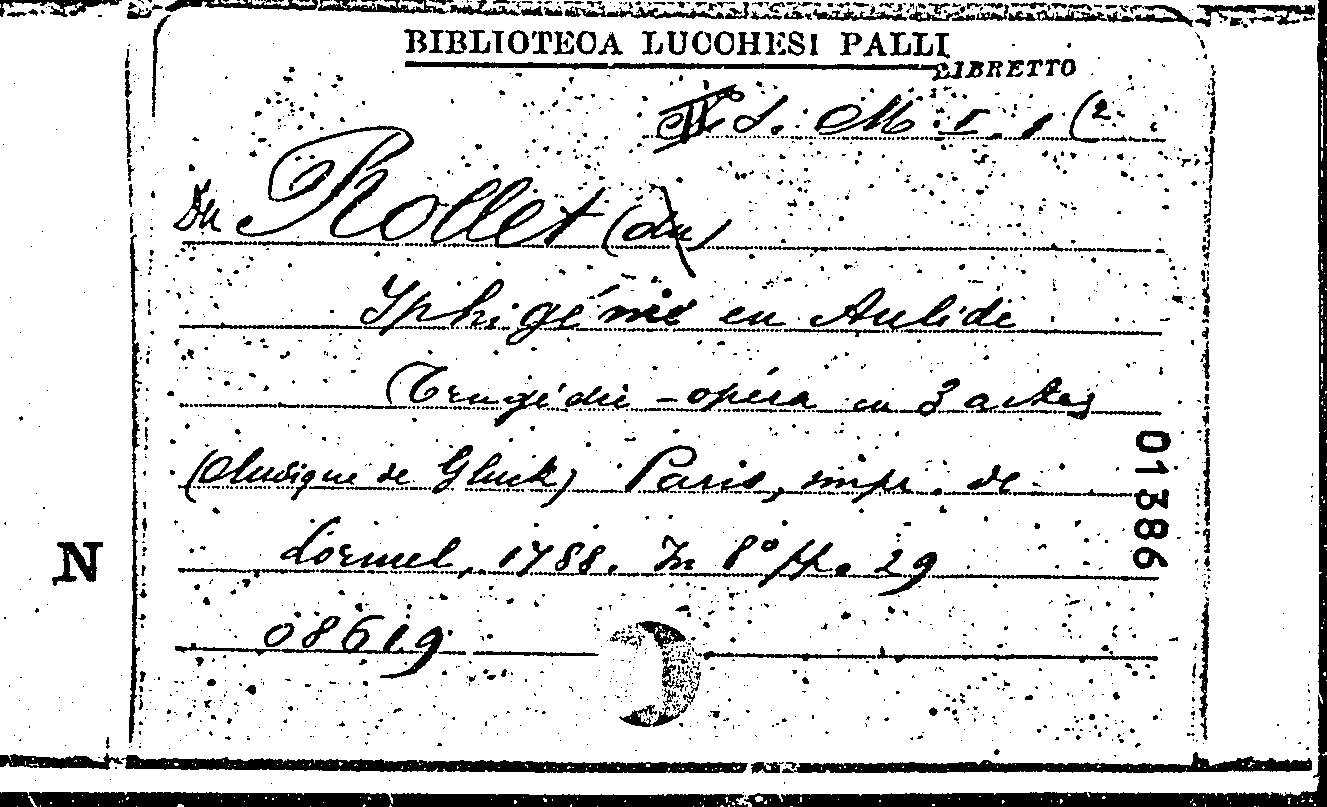 BIBLIOTECA LUCCHESI PALLI
LIBRETTO
S. M. I. 1 (2
Du Rollet (du)
Iphigénie en Aulide
Tragédie-opéra en 3 actes
(Musique de Gluck) Paris, impr. de
Lormel, 1788. In 8º pp. 29
08619
01386
N